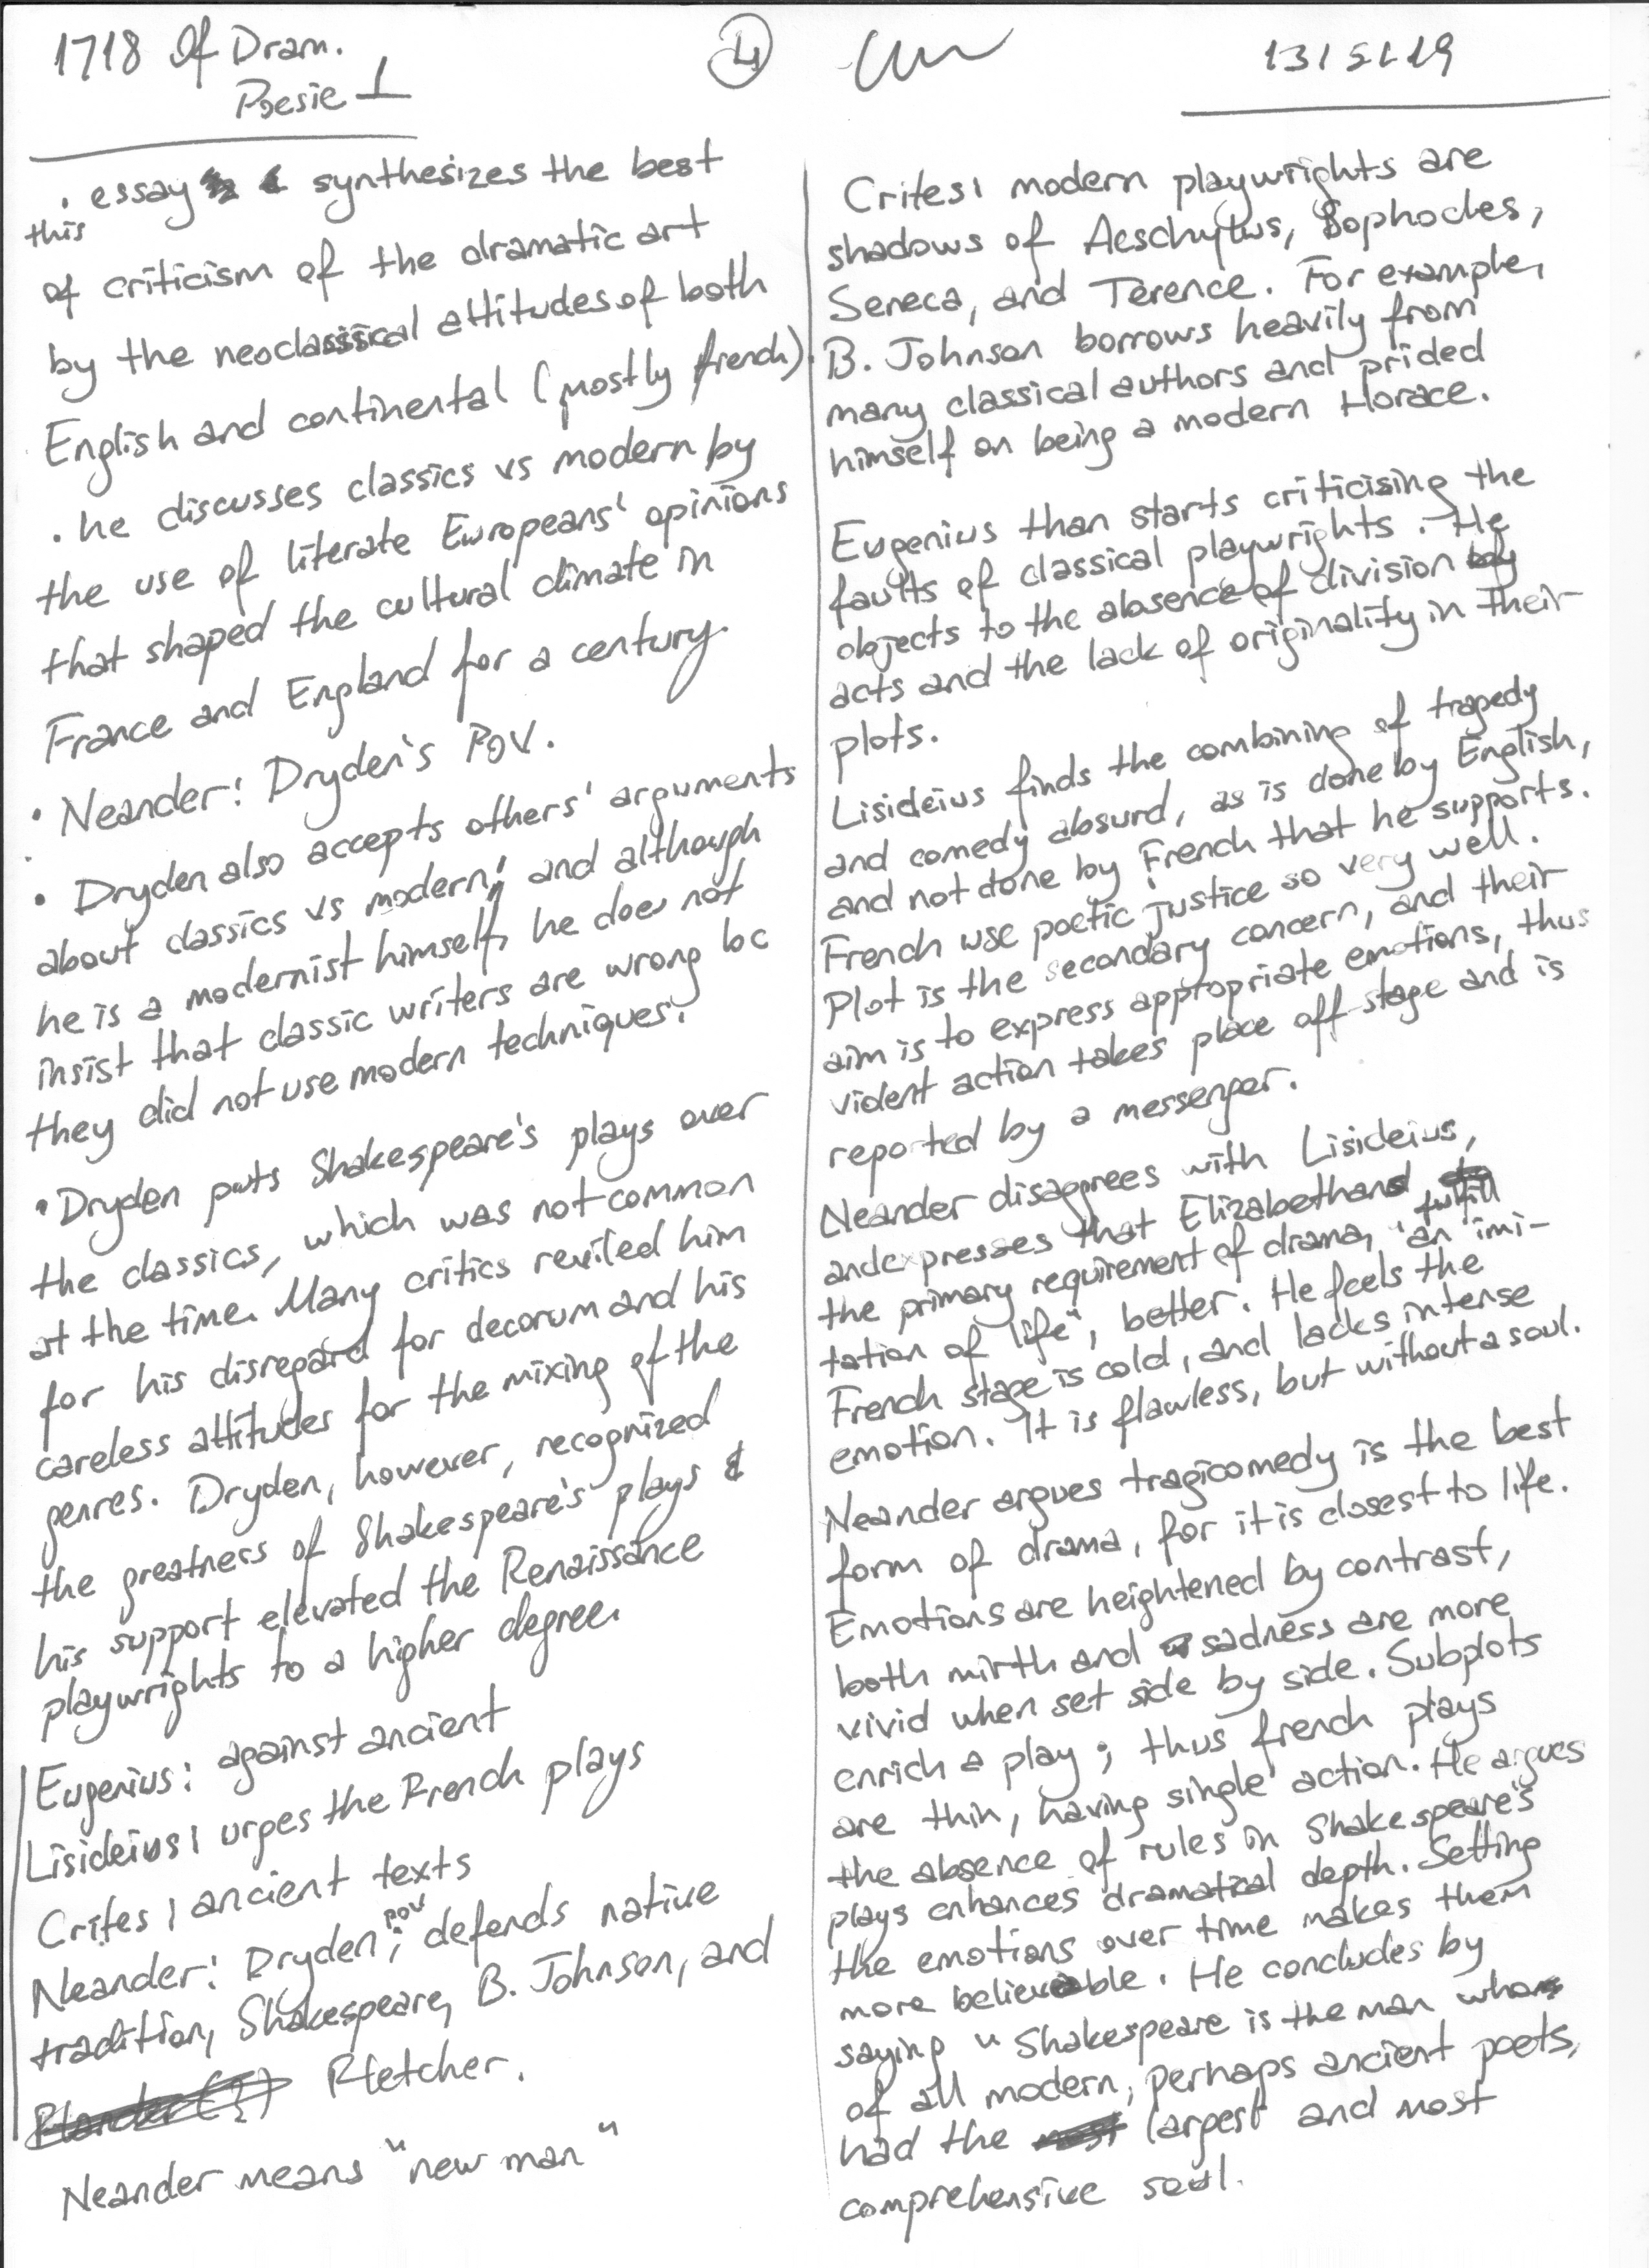 1718 Of Dram.
Poesie 1
4
13/5/19
. essay synthesizes the best
this
of criticism of the dramatic art
by the neoclassical attitudes of both
English and continental (mostly french).
. he discusses classics vs modern by
the use of literate Europeans' opinions
that shaped the cultural climate in
France and England for a century.
• Neander: Dryden's POV.
• Dryden also accepts others' arguments
about classics vs modern; and although
he is a modernist himself, he does not
insist that classic writers are wrong bc
they did not use modern techniques.
• Dryden puts Shakespeare's plays over
the classics, which was not common
at the time. Many critics reviled him
for his disregard for decorum and his
careless attitudes for the mixing of the
genres. Dryden, however, recognized
the greatness of Shakespeare's plays &
his support elevated the Renaissance
playwrights to a higher degree.
Eugenius: against ancient
Lisideius: urges the French plays
Crites: ancient texts
Neander: Dryden POV; defends native
tradition, Shakespeare, B. Johnson, and
Fletcher.
Neander means "new man"
Crites: modern playwrights are
shadows of Aeschylus, Sophocles,
Seneca, and Terence. For example,
B. Johnson borrows heavily from
many classical authors and prided
himself on being a modern Horace.
Eugenius than starts criticising the
faults of classical playwrights. He
objects to the absence of division
acts and the lack of originality in their
plots.
Lisideius finds the combining of tragedy
and comedy absurd, as is done by English,
and not done by French that he supports.
French use poetic justice so very well.
Plot is the secondary concern, and their
aim is to express appropriate emotions, thus
violent action takes place off-stage and is
reported by a messenger.
Neander disagrees with Lisideius,
and expresses that Elizabethans fulfill
the primary requirement of drama, "an imi-
tation of life", better. He feels the
French stage is cold, and lacks intense
emotion. It is flawless, but without a soul.
Neander argues tragicomedy is the best
form of drama, for it is closest to life.
Emotions are heightened by contrast,
both mirth and sadness are more
vivid when set side by side. Subplots
enrich a play; thus french plays
are thin, having single action. He argues
the absence of rules in Shakespeare's
plays enhances dramatical depth. Setting
the emotions over time makes them
more believable. He concludes by
saying "Shakespeare is the man who
of all modern, perhaps ancient poets,
had the largest and most
comprehensive soul.